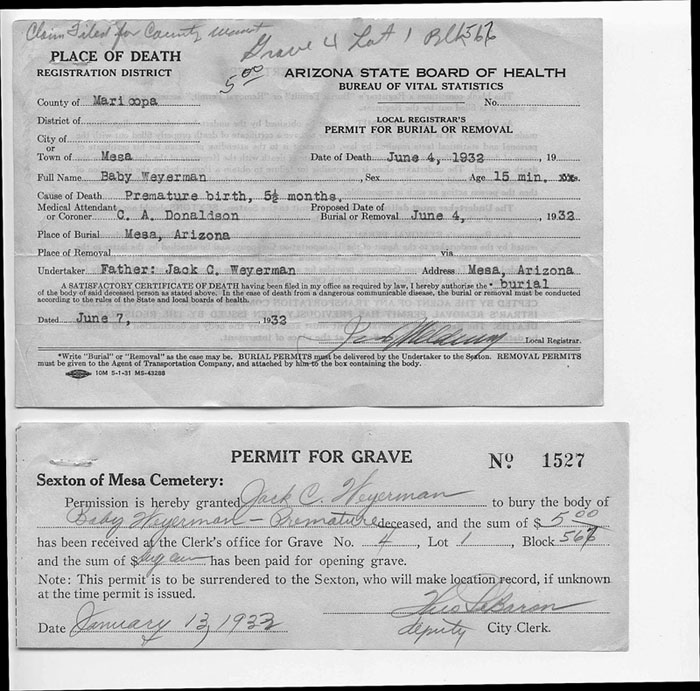 Claim Filed for County
Grave 4 Lot 1 Blk 567
5 00
PLACE OF DEATH
REGISTRATION DISTRICT
ARIZONA STATE BOARD OF HEALTH
BUREAU OF VITAL STATISTICS
County of Maricopa No.
District of LOCAL REGISTRAR'S
City of PERMIT FOR BURIAL OR REMOVAL
or
Town of Mesa Date of Death June 4, 1932, 19
Full Name Baby Weyerman, Sex Age 15 min.
Cause of Death Premature birth, 5½ months.
Medical Attendant or Coroner C. A. Donaldson Proposed Date of Burial or Removal June 4, 1932
Place of Burial Mesa, Arizona
Place of Removal via
Undertaker Father: Jack C. Weyerman Address Mesa, Arizona
A SATISFACTORY CERTIFICATE OF DEATH having been filed in my office as required by law, I hereby authorise the * burial
of the body of said deceased person as stated above. In the case of death from a dangerous communicable disease, the burial or removal must be conducted
according to the rules of the State and local boards of health.
Dated June 7, 1932
Local Registrar.
*Write "Burial" or "Removal" as the case may be. BURIAL PERMITS must be delivered by the Undertaker to the Sexton. REMOVAL PERMITS
must be given to the Agent of Transportation Company, and attached by him to the box containing the body.
10M 5-1-31 MS-43288
PERMIT FOR GRAVE No 1527
Sexton of Mesa Cemetery:
Permission is hereby granted Jack C. Weyerman to bury the body of
Baby Weyerman - Premature deceased, and the sum of $ 5 00
has been received at the Clerk's office for Grave No. 4, Lot 1, Block 567
and the sum of $ has been paid for opening grave.
Note: This permit is to be surrendered to the Sexton, who will make location record, if unknown
at the time permit is issued.
Date January 13, 1933 deputy City Clerk.